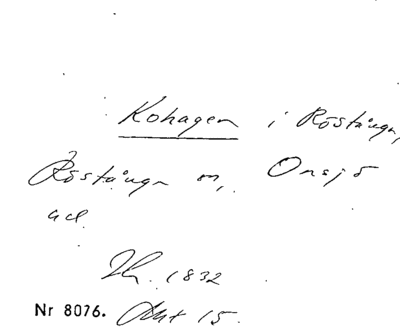 Kohagen i Röstånga,
Röstånga sn, Onsjö
hd.
1832
Nr 8076. Akt 15.